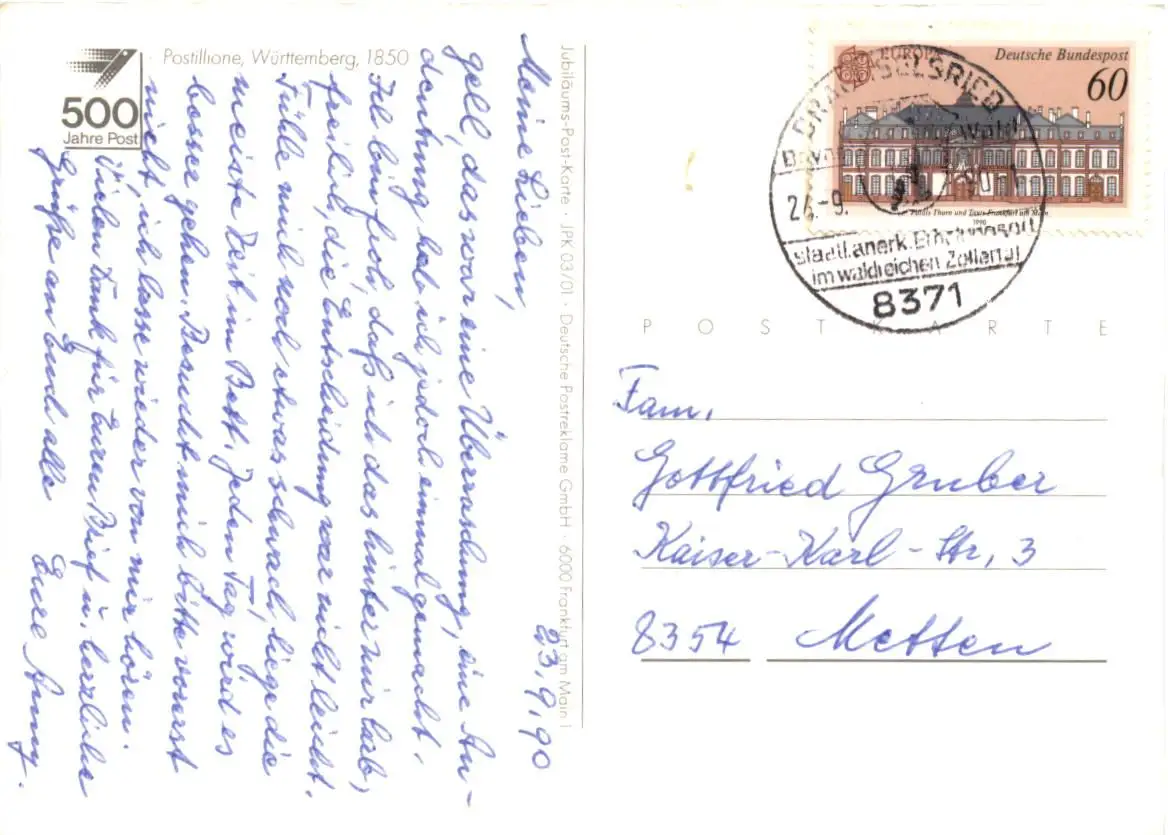 500
Jahre Post
Postillione, Württemberg, 1850
Jubiläums-Post-Karte · JPK 03/01 · Deutsche Postreklame GmbH · 6000 Frankfurt am Main 1
23.9.90
Meine Lieben,
gell, das war eine Überraschung, eine An-
deutung hab ich jedoch einmal gemacht.
Ich bin froh, daß ich das hinter mir hab,
freilich, die Entscheidung war nicht leicht.
Fühle mich noch etwas schwach, liege die
meiste Zeit im Bett. Jeden Tag wird es
besser gehen. Besucht mich bitte vorerst
nicht, ich lasse wieder von mir hören.
Vielen Dank für Euren Brief u. herzliche
Grüße an Euch alle
Eure Anny.
EUROPA
Deutsche Bundespost
60
Palais Thurn und Taxis Frankfurt am Main
1990
24.-9.
staatl. anerk. Erholungsort
im waldreichen Zellertal
8371
POSTKARTE
Fam.
Gottfried Gruber
Kaiser-Karl-Str. 3
8354 Metten